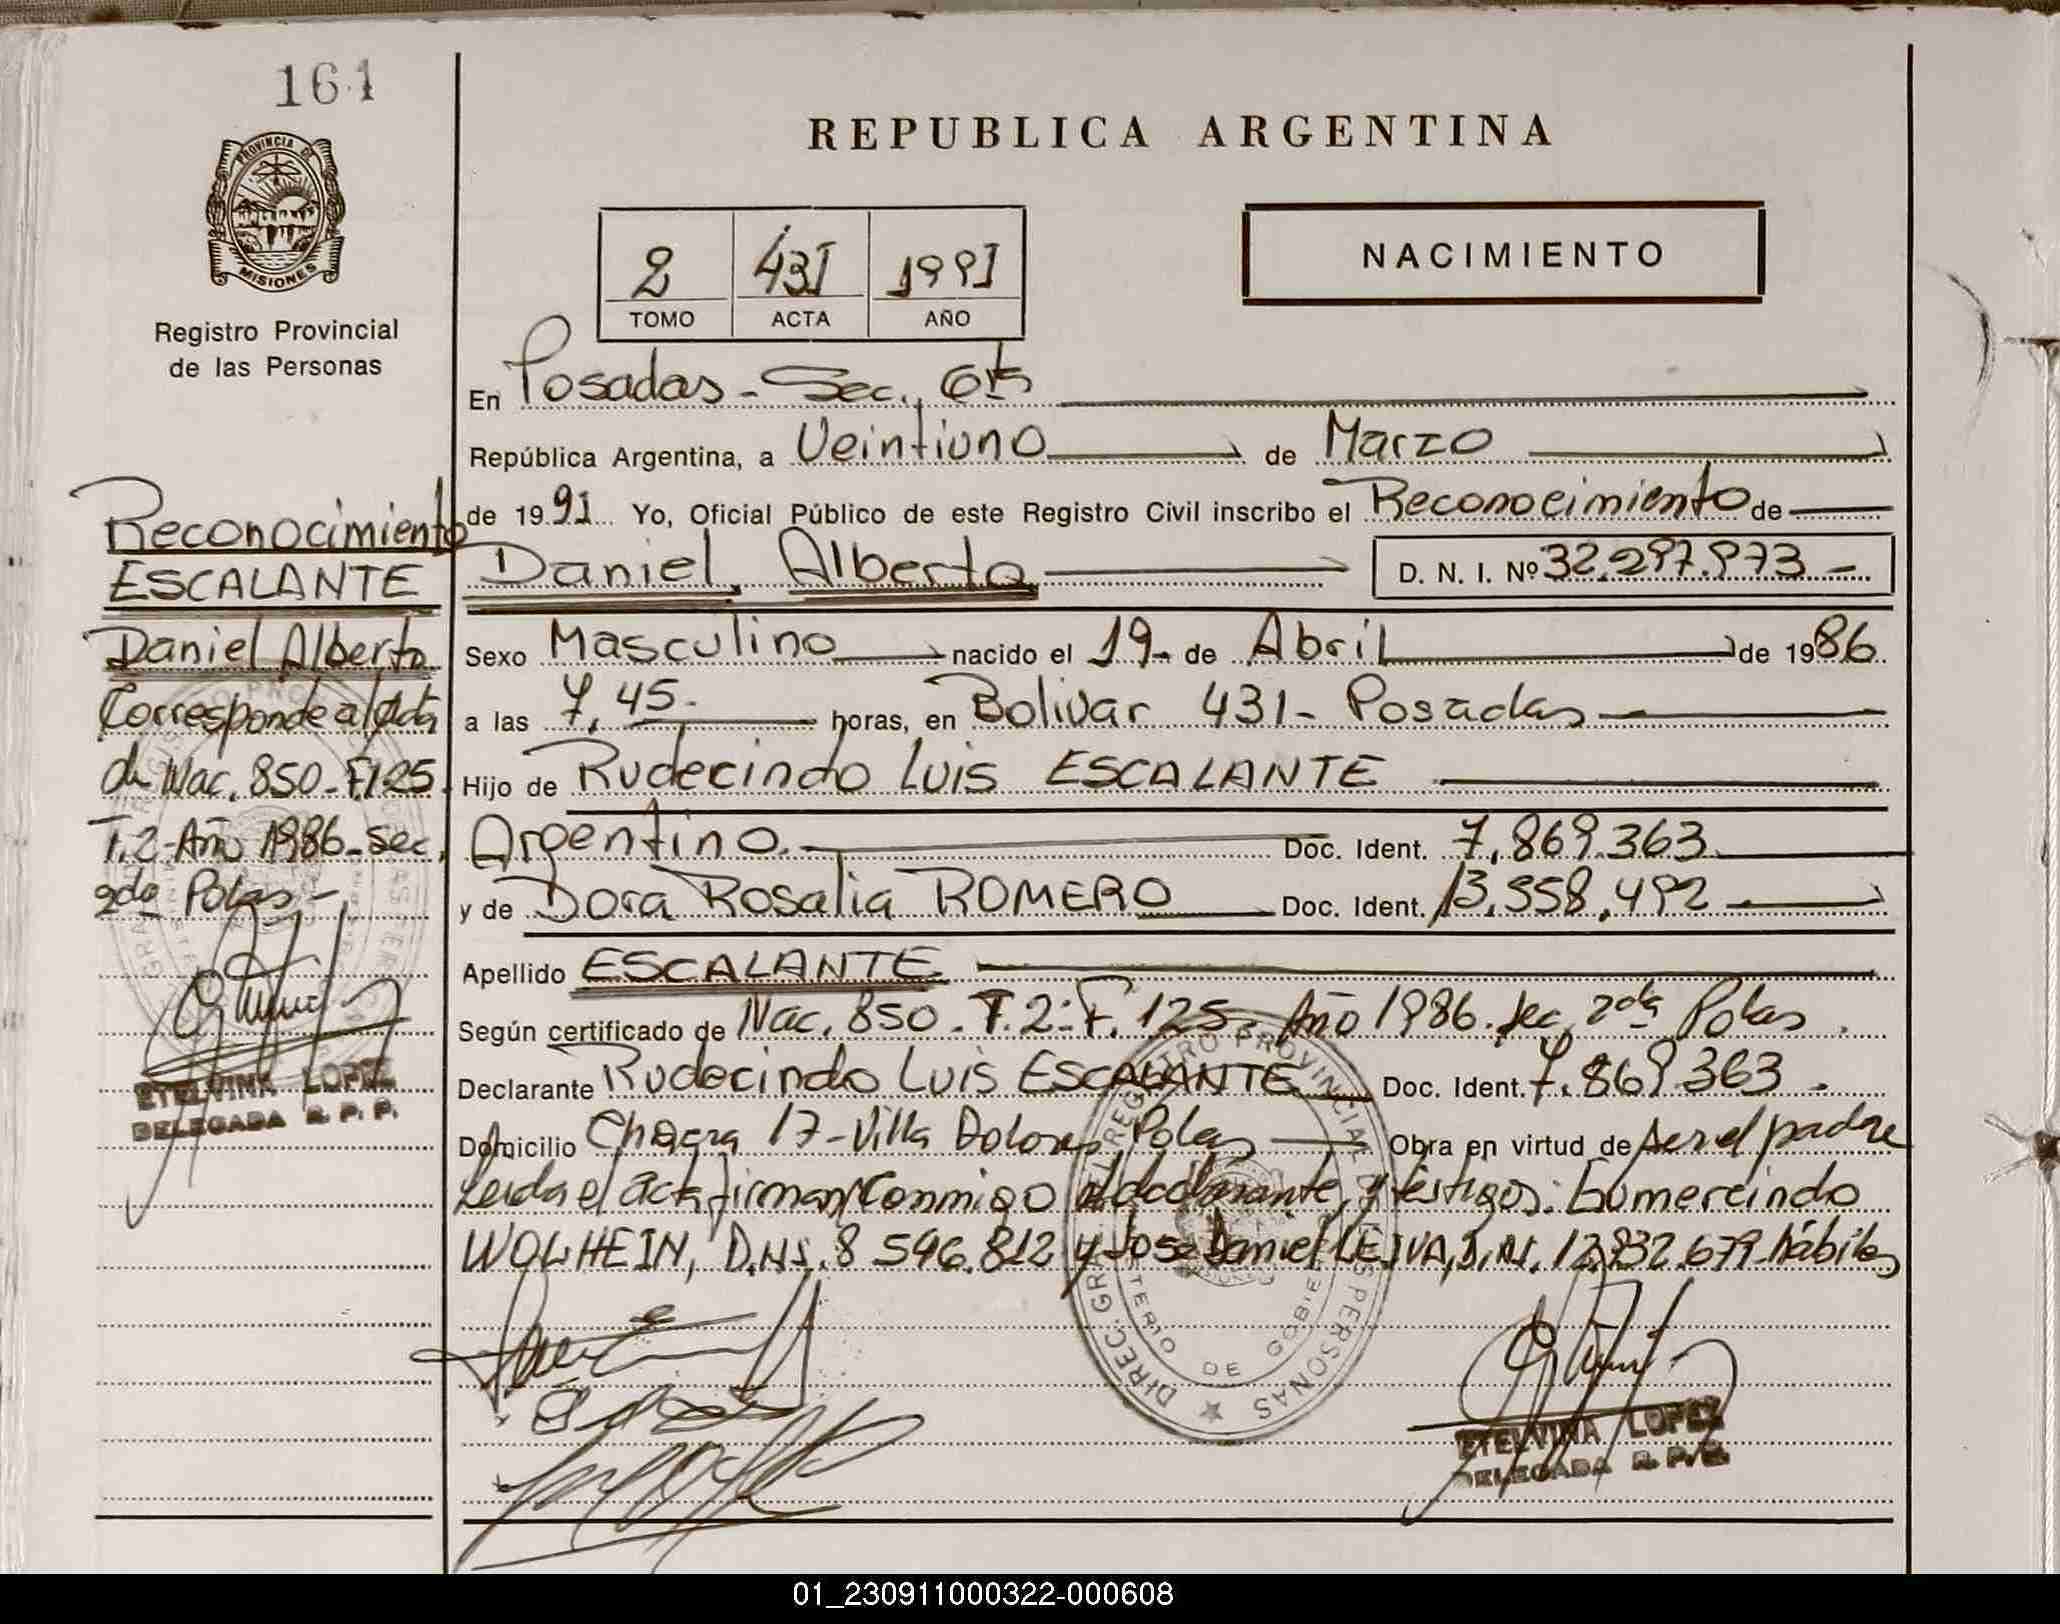 161
PROVINCIA DE
MISIONES
Registro Provincial
de las Personas
Reconocimiento
ESCALANTE
Daniel Alberto
Corresponde al Acta
de Nac. 850-F125
T.2-Año 1986-Sec.
2da Pdas-
ETELVINA LOPEZ
DELEGADA R. P. P.
REPUBLICA ARGENTINA
2 431 1991
TOMO ACTA AÑO
NACIMIENTO
En Posadas-Sec. 6ta
República Argentina, a Veintiuno de Marzo
de 1991 Yo, Oficial Público de este Registro Civil inscribo el Reconocimiento de
Daniel Alberto D. N. I. Nº 32.297.973-
Sexo Masculino nacido el 19- de Abril de 1986
a las 7,45- horas, en Bolivar 431- Posadas
Hijo de Rudecindo Luis ESCALANTE
Argentino. Doc. Ident. 7.869.363
y de Dora Rosalia ROMERO Doc. Ident. 13.558.492
Apellido ESCALANTE
Según certificado de Nac. 850. T.2-F.125. Año 1986. Sec. 2da Pdas.
Declarante Rudecindo Luis ESCALANTE Doc. Ident. 7.869.363.
Domicilio Chacra 17-Villa Dolores Pdas Obra en virtud de ser el padre
Leida el acta firman conmigo el declarante y testigos: Gumercindo
WOLHEIN, D.N.I. 8 596.812 y Jose Daniel LEIVA, D.N.I. 12.832.679 hábiles
DIREC. GRAL. REGISTRO PROVINCIAL DE LAS PERSONAS
MINISTERIO DE GOBIERNO
ETELVINA LOPEZ
DELEGADA R. P. P.
01_230911000322-000608